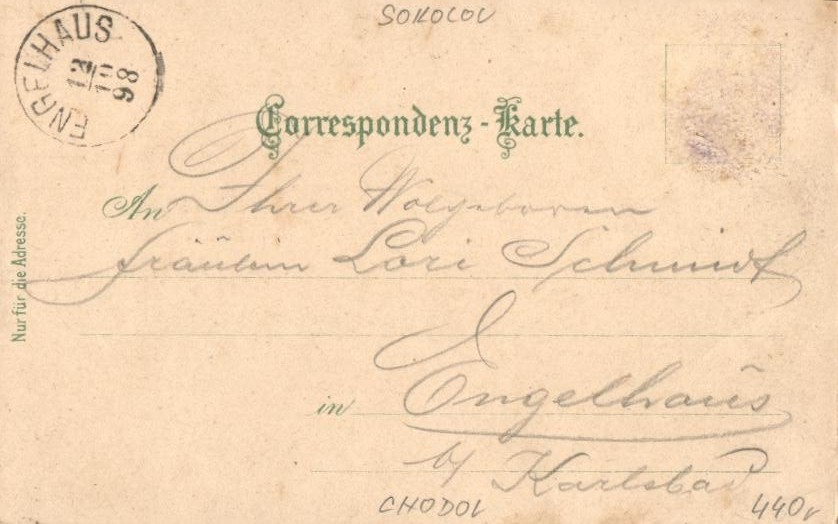 SOKOLOV
ENGELHAUS
12/10
98
Correspondenz-Karte.
An Ihrer Wolgeboren
Fräulein Lori Schmidt
Nur für die Adresse.
in Engelhaus
b/ Karlsbad
CHODOV
440,